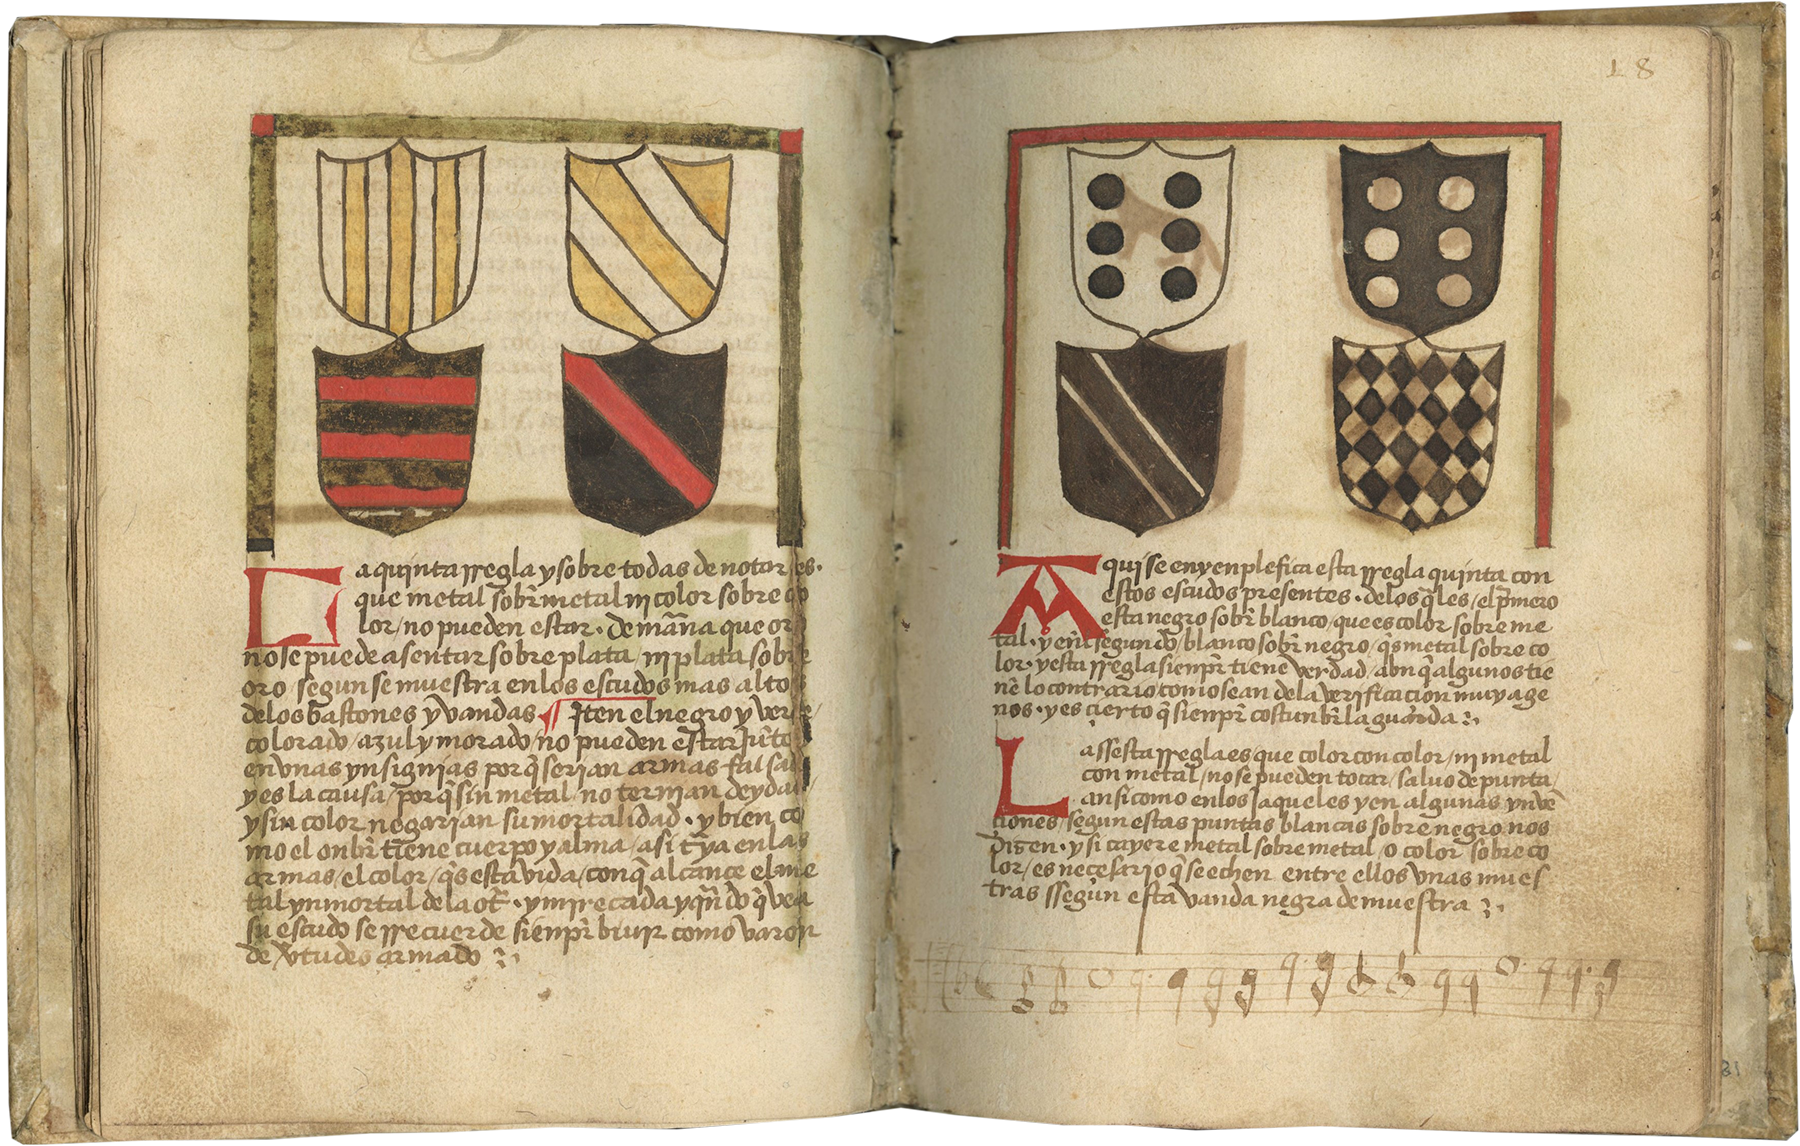 La quinta rregla y sobre todas de notar es.
que metal sobr̃ metal ni color sobre co
lor / no pueden estar . de mañna que oro
no se puede asentar sobre plata / ni plata sobre
oro / segun se muestra en los escudos mas altos
de los bastones y vandas ¶ Iten el negro y verde /
colorado / azul y morado / no pueden estar Jũtos
en vnas ynsignias por q̃ serian armas falsas
y es la causa / porq̃ sin metal / no ternian deydad /
y sin color negarian su mortalidad . y bien co
mo el onbr̃ tiẽne cuerpo y alma / asi en las
armas / el color / q̃s esta vida / con q̃ alcançe el me
tal ynmortal de la ot̃ . y mire cada y q̃ñdo q̃ vea
su escudo se rrecuerde sienpr̃ biuir como varon
de ṽtudes armado
18
Aqui se enxenplefica esta rregla quinta con
estos escudos presentes . delos q̃les / el p̃mero
esta negro sobr̃ blanco / que es color sobre me
tal . y en̄l segundo / blanco sobr̃ negro / q̃s metal sobre co
lor . y esta rregla sienpr̃ tiene verdad / abn q̃ algunos tie
nẽ lo contrario como sean dela verificacion muy age
nos . y es cierto q̃ sienpr̃ costunbr̃ la guarda
La ssesta rregla es que color con color / ni metal
con metal / no se pueden tocar / saluo de punta /
ansi como en los Jaqueles y en algunas ynvẽ
ciones / segun estas puntas blancas sobre negro nos
dizen . y si cayere metal sobre metal / o color sobre co
lor / es necesario q̃ se echen entre ellos vnas mues
tras ssegun esta vanda negra demuestra
31